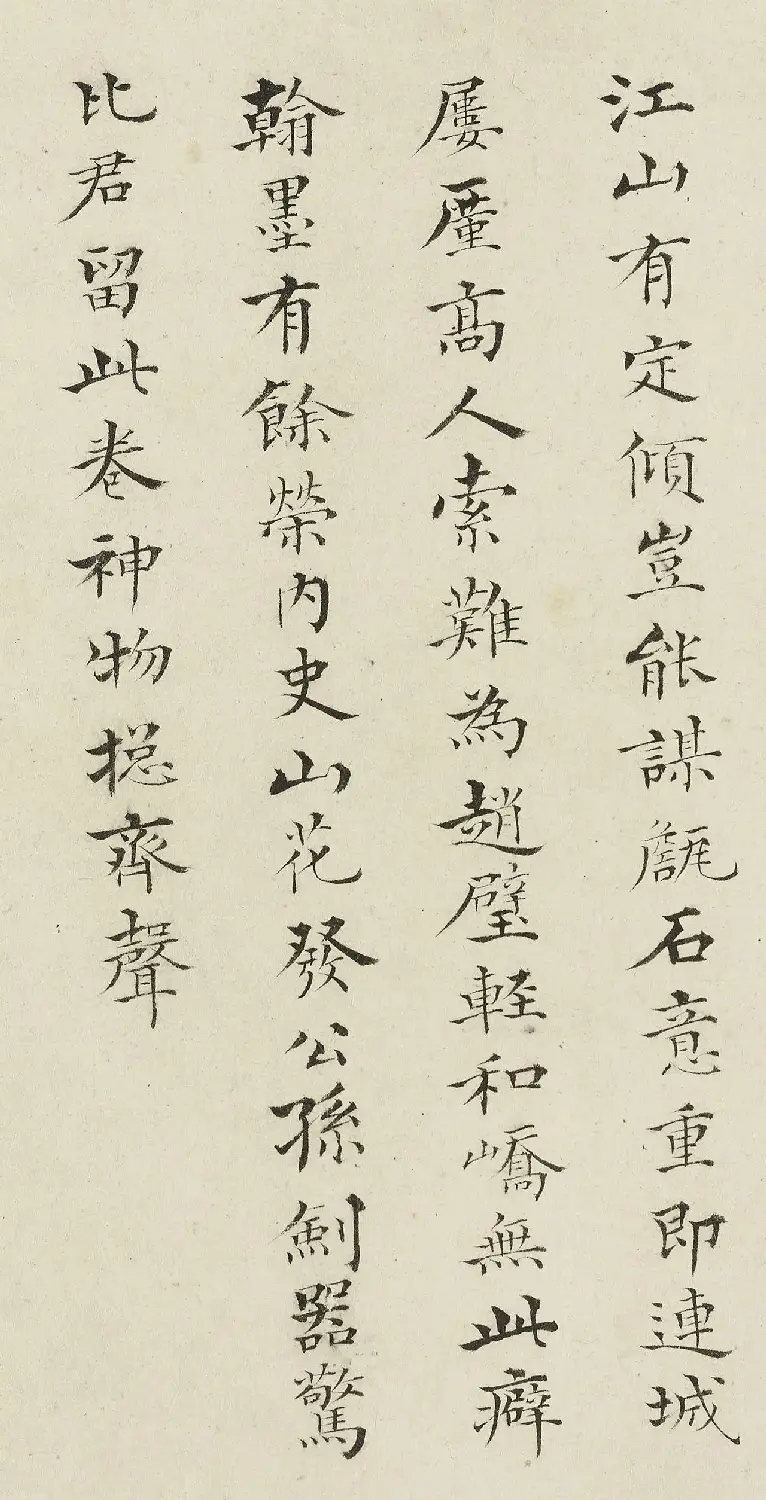 江山有定傾豈能謀甔石意重即連城
屢厪髙人索難為趙璧輕和嶠無此癖
翰墨有餘榮内史山花發公孫劍器驚
比君留此卷神物揔齊聲